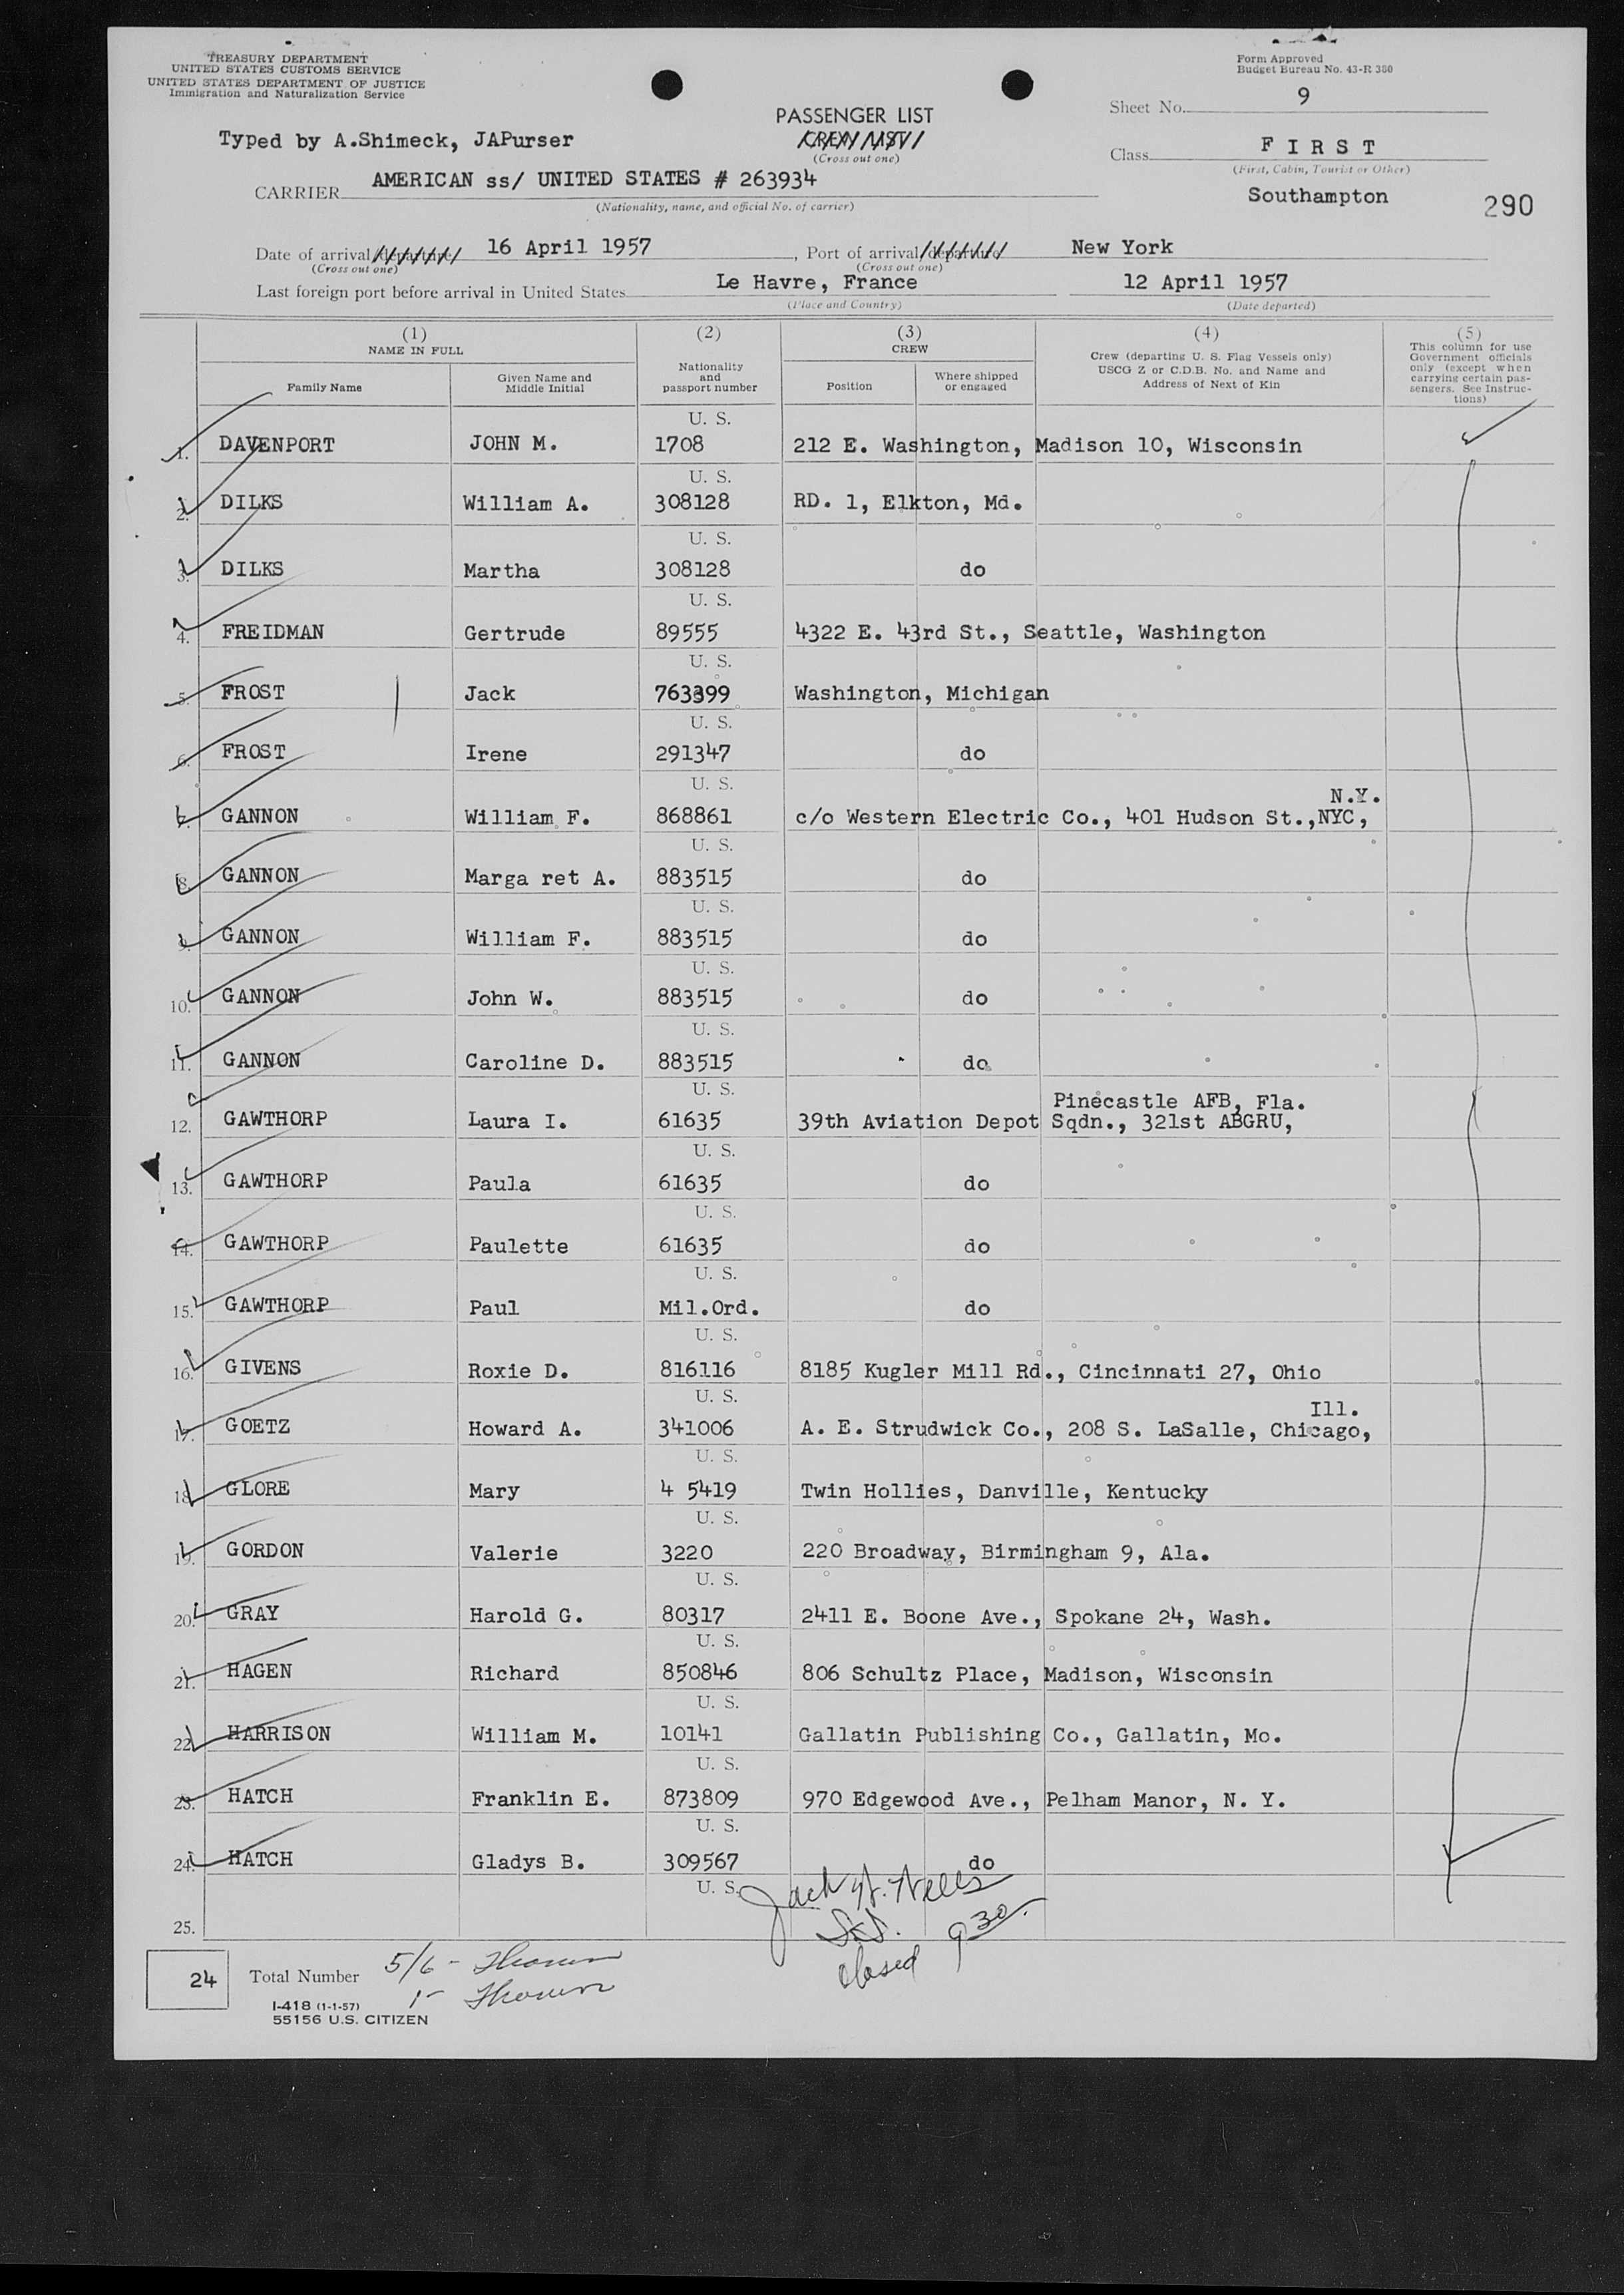 TREASURY DEPARTMENT
UNITED STATES CUSTOMS SERVICE
UNITED STATES DEPARTMENT OF JUSTICE
Immigration and Naturalization Service
Form Approved
Budget Bureau No. 43-R 380
Sheet No. 9
PASSENGER LIST
CREW LIST
(Cross out one)
Typed by A.Shimeck, JAPurser
Class F I R S T
(First, Cabin, Tourist or Other)
CARRIER AMERICAN ss/ UNITED STATES # 263934
(Nationality, name, and official No. of carrier)
Southampton
290
Date of arrival/departure 16 April 1957, Port of arrival/departure New York
(Cross out one) (Cross out one)
Last foreign port before arrival in United States Le Havre, France 12 April 1957
(Place and Country) (Date departed)
(1) NAME IN FULL
Family Name
Given Name and Middle Initial
(2)
Nationality and passport number
(3) CREW
Position
Where shipped or engaged
(4)
Crew (departing U. S. Flag Vessels only) USCG Z or C.D.B. No. and Name and Address of Next of Kin
(5)
This column for use Government officials only (except when carrying certain passengers. See Instructions)
U. S.
1. DAVENPORT JOHN M. 1708 212 E. Washington, Madison 10, Wisconsin
U. S.
2. DILKS William A. 308128 RD. 1, Elkton, Md.
U. S.
3. DILKS Martha 308128 do
U. S.
4. FREIDMAN Gertrude 89555 4322 E. 43rd St., Seattle, Washington
U. S.
5. FROST Jack 763399 Washington, Michigan
U. S.
6. FROST Irene 291347 do
U. S. N.Y.
7. GANNON William F. 868861 c/o Western Electric Co., 401 Hudson St.,NYC,
U. S.
8. GANNON Marga ret A. 883515 do
U. S.
9. GANNON William F. 883515 do
U. S.
10. GANNON John W. 883515 do
U. S.
11. GANNON Caroline D. 883515 do
U. S. Pinecastle AFB, Fla.
12. GAWTHORP Laura I. 61635 39th Aviation Depot Sqdn., 321st ABGRU,
U. S.
13. GAWTHORP Paula 61635 do
U. S.
14. GAWTHORP Paulette 61635 do
U. S.
15. GAWTHORP Paul Mil.Ord. do
U. S.
16. GIVENS Roxie D. 816116 8185 Kugler Mill Rd., Cincinnati 27, Ohio
U. S. Ill.
17. GOETZ Howard A. 341006 A. E. Strudwick Co., 208 S. LaSalle, Chicago,
U. S.
18. GLORE Mary 4 5419 Twin Hollies, Danville, Kentucky
U. S.
19. GORDON Valerie 3220 220 Broadway, Birmingham 9, Ala.
U. S.
20. GRAY Harold G. 80317 2411 E. Boone Ave., Spokane 24, Wash.
U. S.
21. HAGEN Richard 850846 806 Schultz Place, Madison, Wisconsin
U. S.
22. HARRISON William M. 10141 Gallatin Publishing Co., Gallatin, Mo.
U. S.
23. HATCH Franklin E. 873809 970 Edgewood Ave., Pelham Manor, N. Y.
U. S.
24. HATCH Gladys B. 309567 do
U. S.
25.
closed 9 30
24 Total Number 5/6 -
I-418 (1-1-57)
55156 U.S. CITIZEN